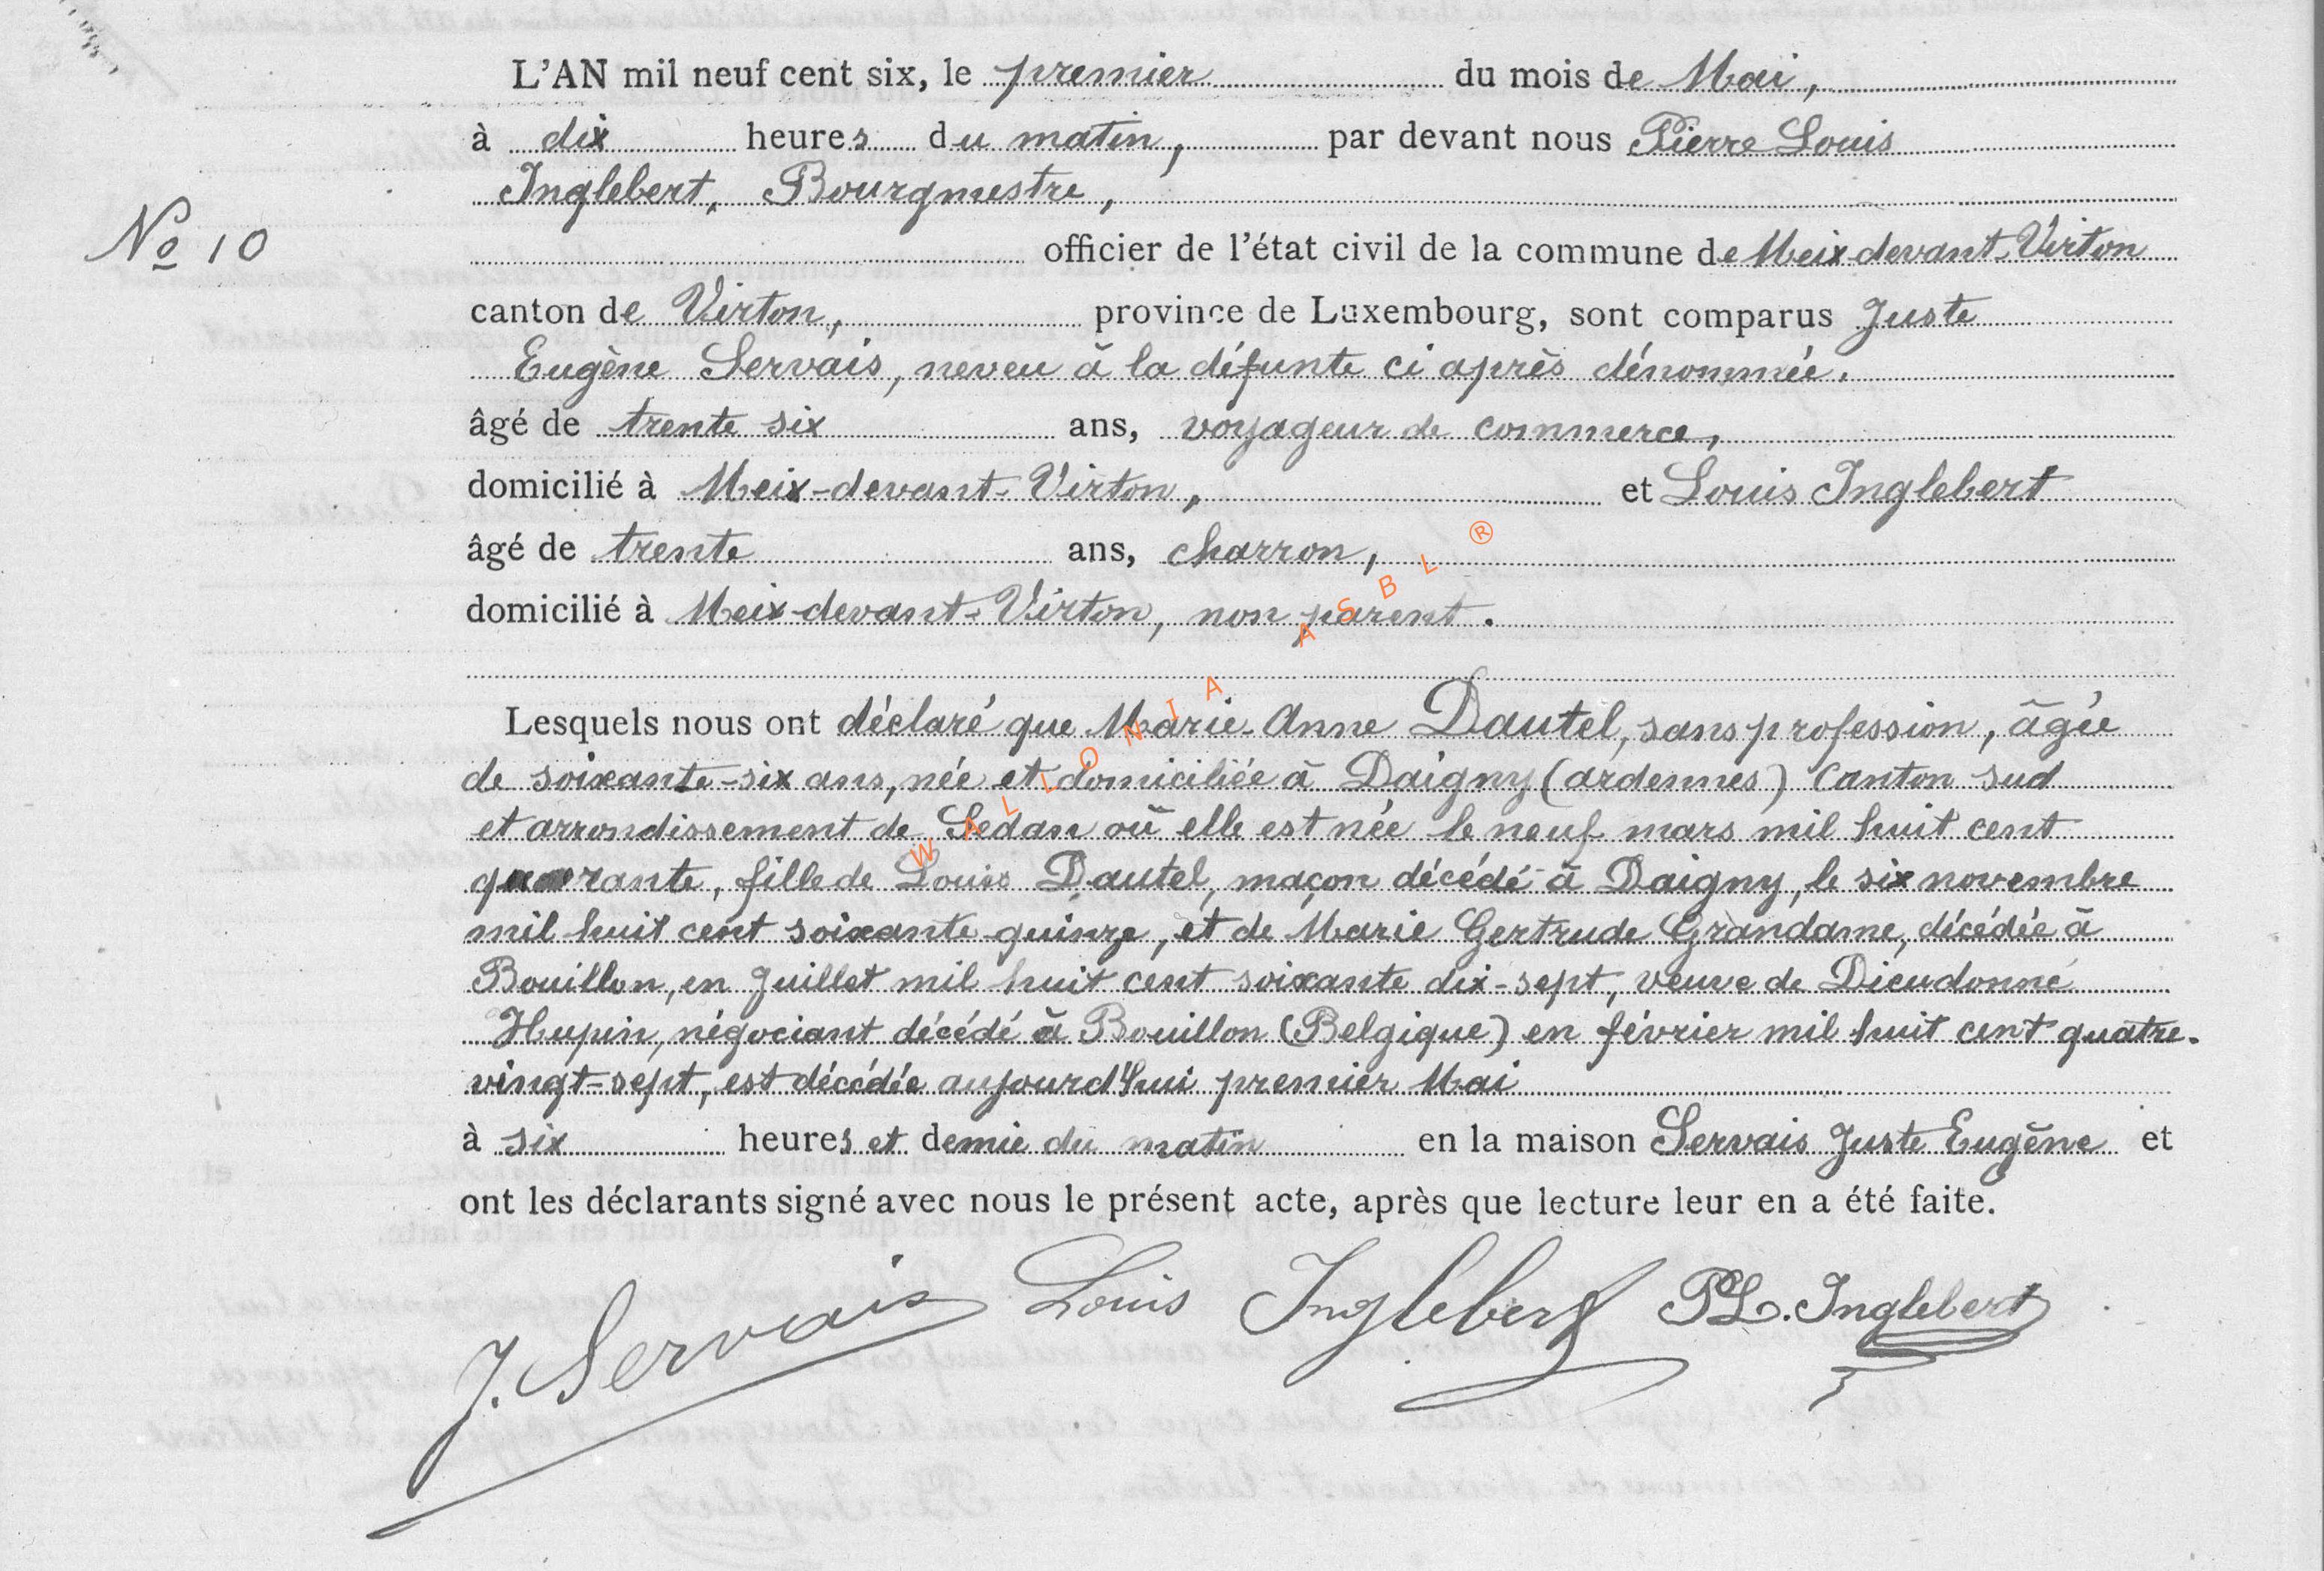 L'AN mil neuf cent six, le premier du mois de Mai,
à dix heures du matin, par devant nous Pierre Louis
Inglebert, Bourgmestre,
No 10
officier de l'état civil de la commune de Meix-devant-Virton
canton de Virton, province de Luxembourg, sont comparus Juste
Eugène Servais, neveu à la défunte ci après dénommée.
âgé de trente six ans, voyageur de commerce,
domicilié à Meix-devant-Virton, et Louis Inglebert
âgé de trente ans, charron,
domicilié à Meix-devant-Virton, non parent.
Lesquels nous ont déclaré que Marie-Anne Dautel, sans profession, âgée
de soixante-six ans, née et domiciliée à Daigny (ardennes) Canton sud
et arrondissement de Sedan où elle est née le neuf mars mil huit cent
quarante, fille de Louis Dautel, maçon décédé à Daigny, le six novembre
mil huit cent soixante quinze, et de Marie Gertrude Grandame, décédée à
Bouillon, en Juillet mil huit cent soixante dix-sept, veuve de Dieudonné
Hupin, négociant décédé à Bouillon (Belgique) en février mil huit cent quatre-
vingt-sept, est décédée aujourd'hui premier Mai
à six heures et demie du matin en la maison Servais Juste Eugène et
ont les déclarants signé avec nous le présent acte, après que lecture leur en a été faite.
J. Servais Louis Inglebert PL. Inglebert
WALLONIA ASBL ®